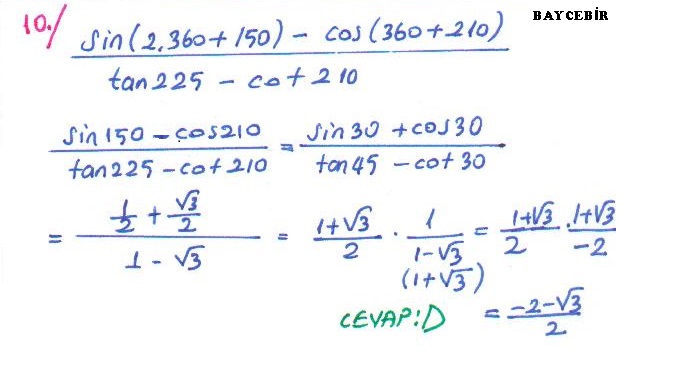 BAYCEBİR
10./ sin(2.360+150) - cos(360+210) / tan225 - cot210
sin150 - cos210 / tan225 - cot210 = sin30 + cos30 / tan45 - cot30
= 1/2 + √3/2 / 1 - √3 = 1+√3 / 2 . 1 / 1-√3 (1+√3) = 1+√3 / 2 . 1+√3 / -2
CEVAP:D = -2-√3 / 2